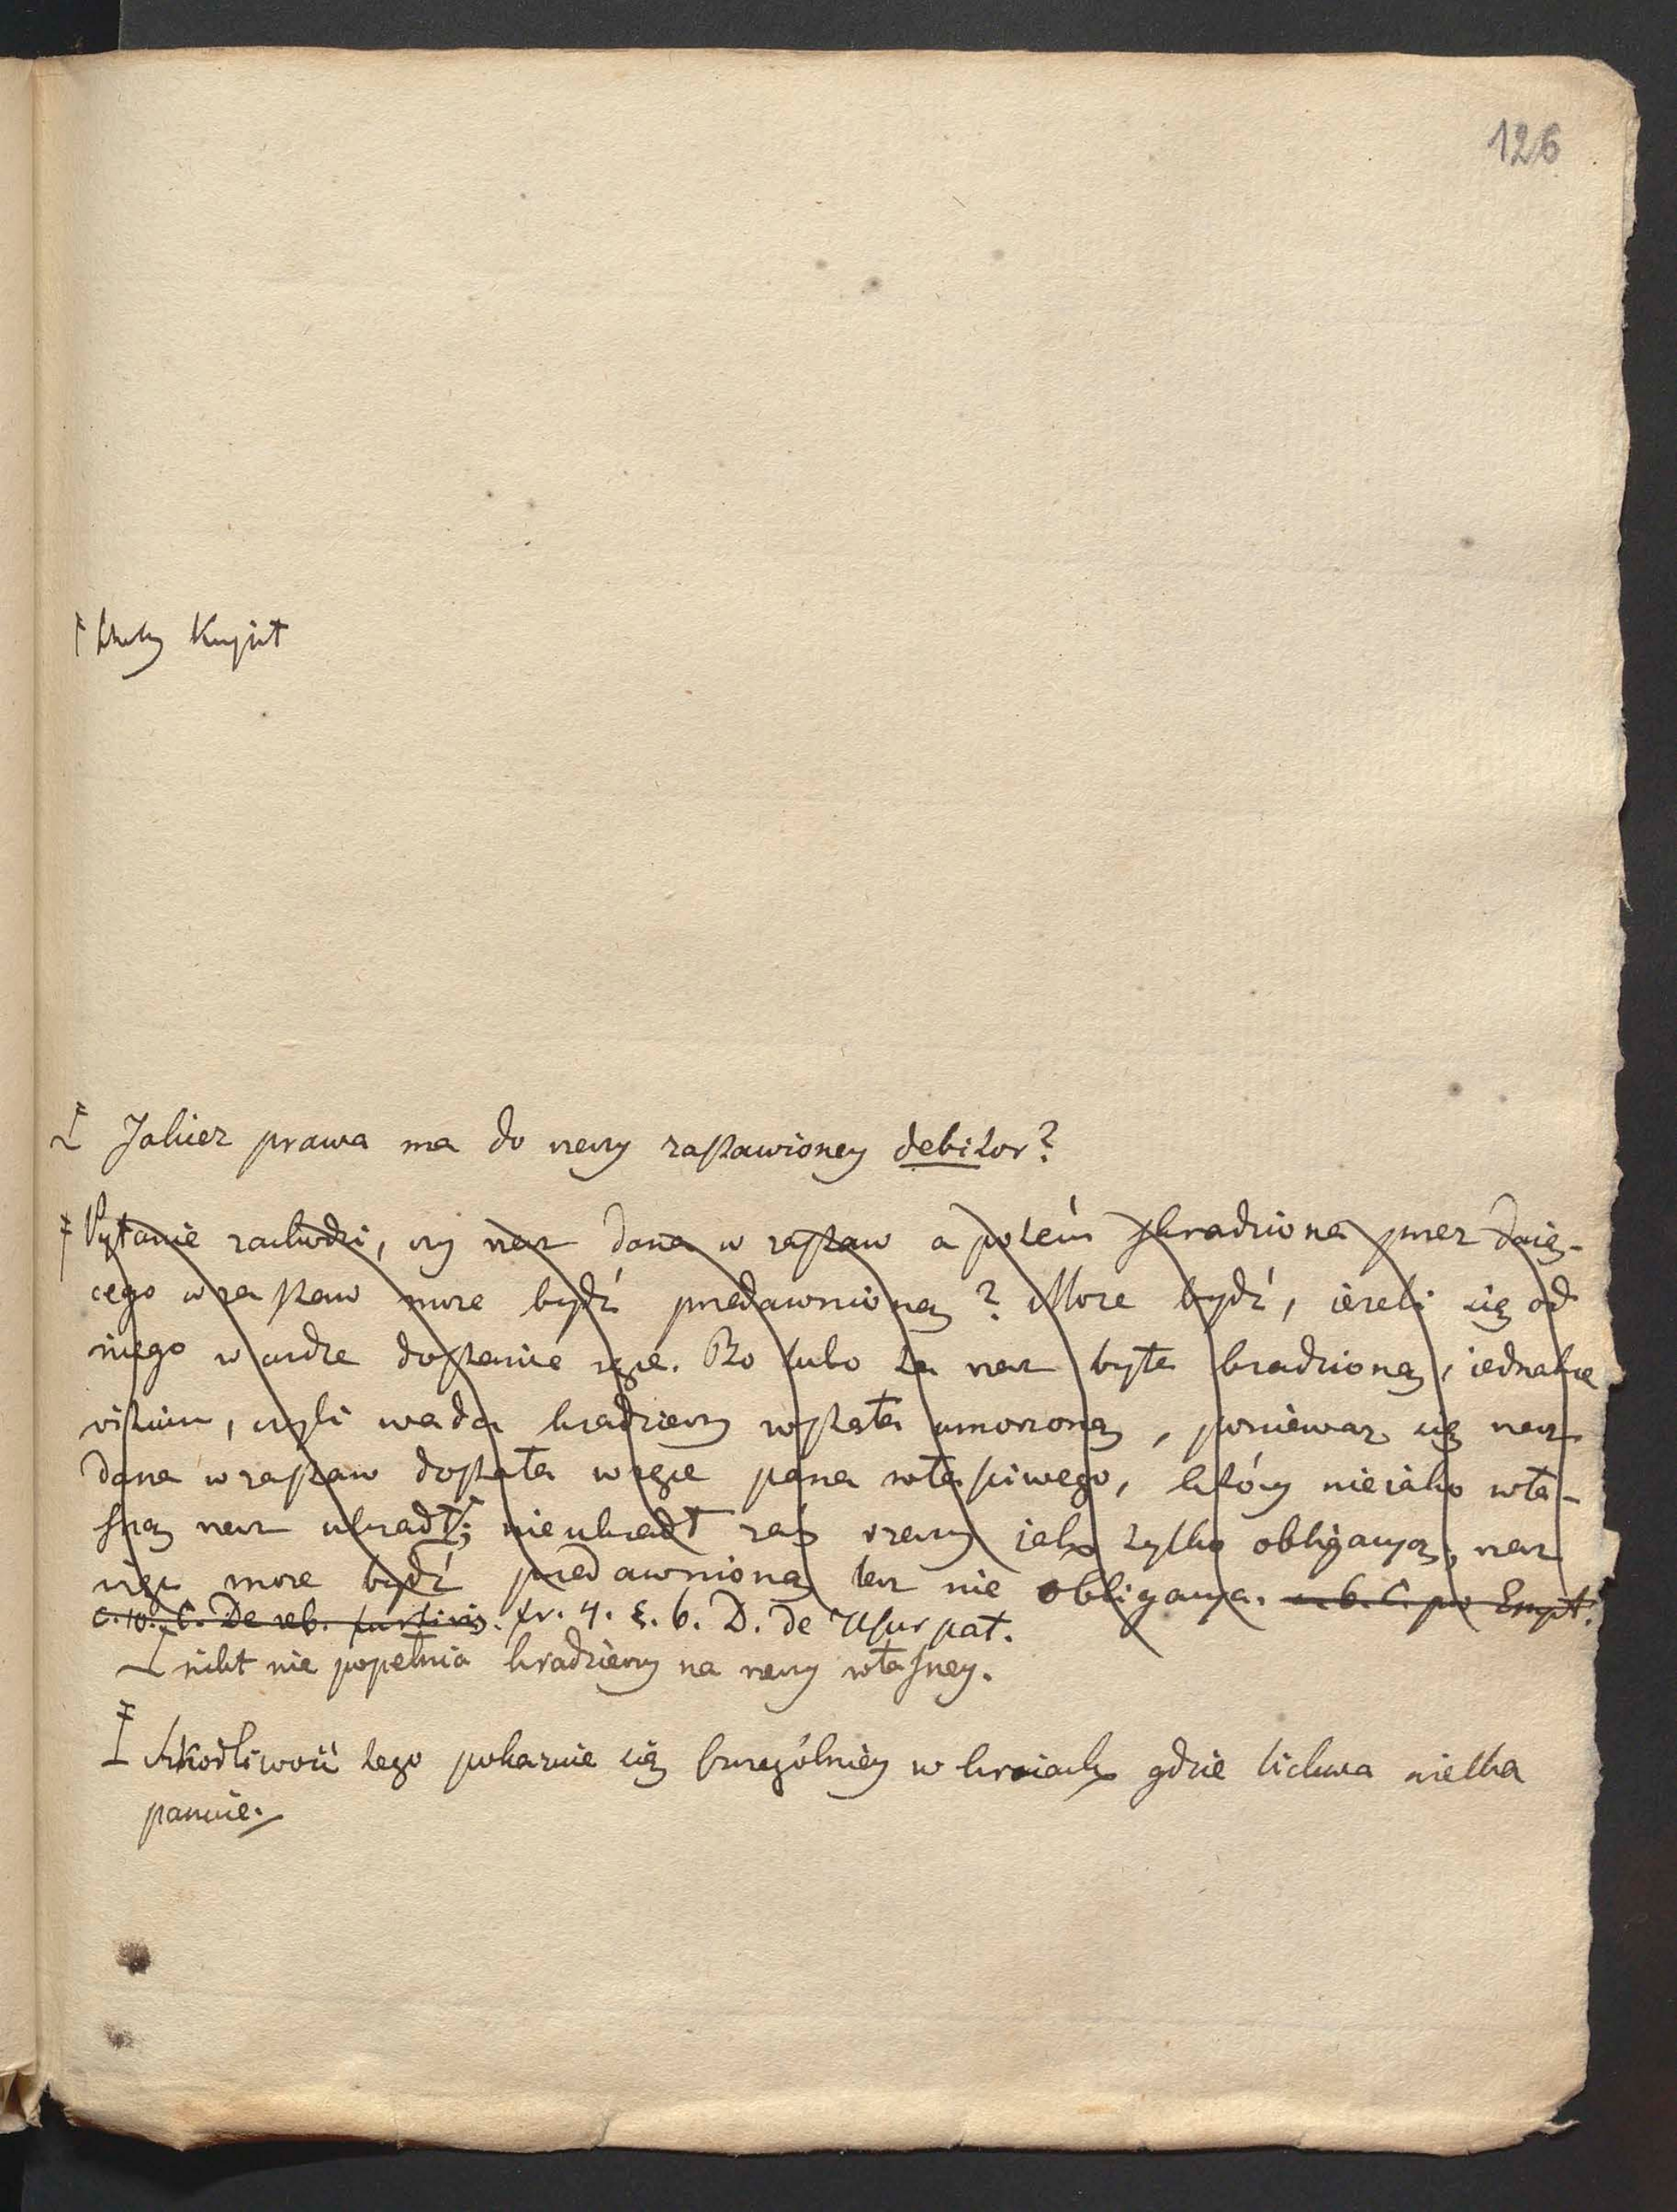 126
Kupił
Jakież prawa ma do rzeczy zastawioney debitor?
Pytanie zachodzi, czy rzecz dana w zastaw a potém skradziona przez daią-
cego w zastaw może bydź przedawnioną? Może bydź, ieżeli się od
niego w cudze dostanie ręce. Bo lubo ta rzecz była kradzioną, iednakże
vitium, czyli wada kradzieży została umorzoną, ponieważ się rzecz
dana w zastaw dostała w ręce pana właściwego, który nieiako wła-
sną rzecz ukradł; nie ukradł zaś rzeczy iak tylko obligacyą, rzecz
więc może bydź przedawnioną lecz nie obligacya. c. 6. C. pro Empt.
c. 10. C. De reb. furtivis. fr. 4. §. 6. D. de Usurpat.
nikt nie popełnia kradzieży na rzeczy własney.
Szkodliwość tego pokazuie się szczególniey w kraiach gdzie lichwa wielka
panuie.